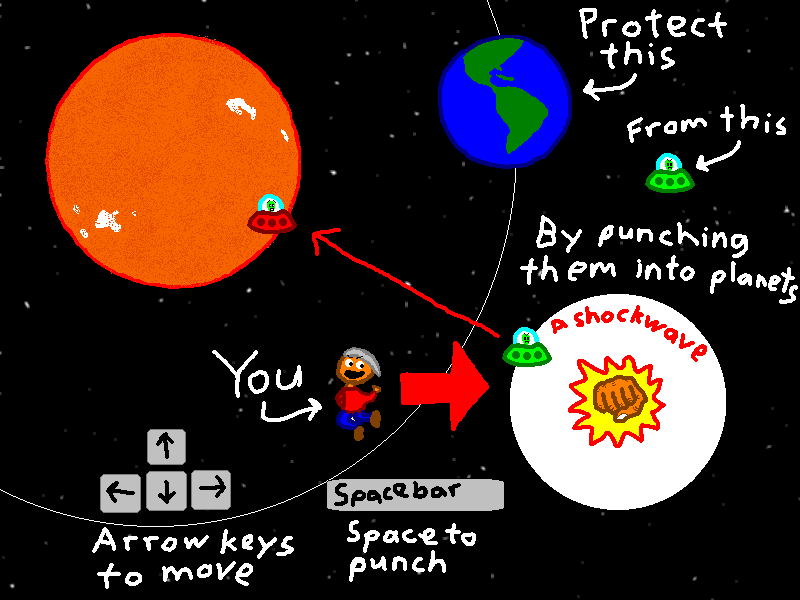 Protect
this
From this
By punching
them into planets
A shockwave
You
Spacebar
Arrow keys
to move
Space to
punch